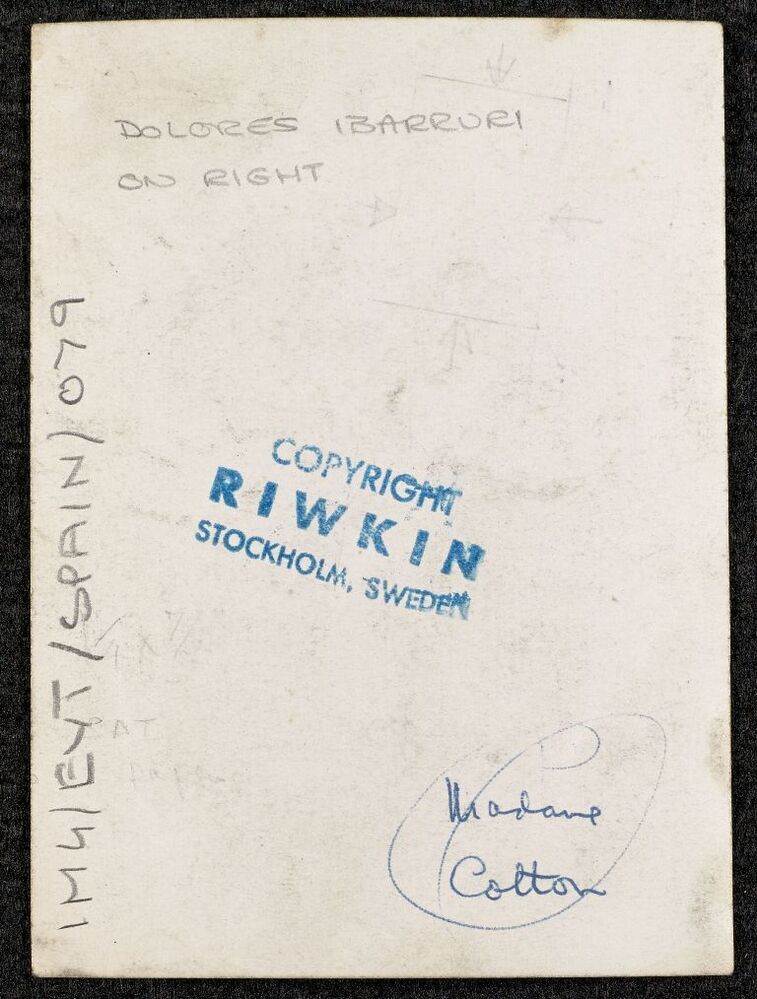 DOLORES IBARRURI
ON RIGHT
IM4/EYT/SPAIN/079
COPYRIGHT
RIWKIN
STOCKHOLM, SWEDEN
AT
Madame
Cotton